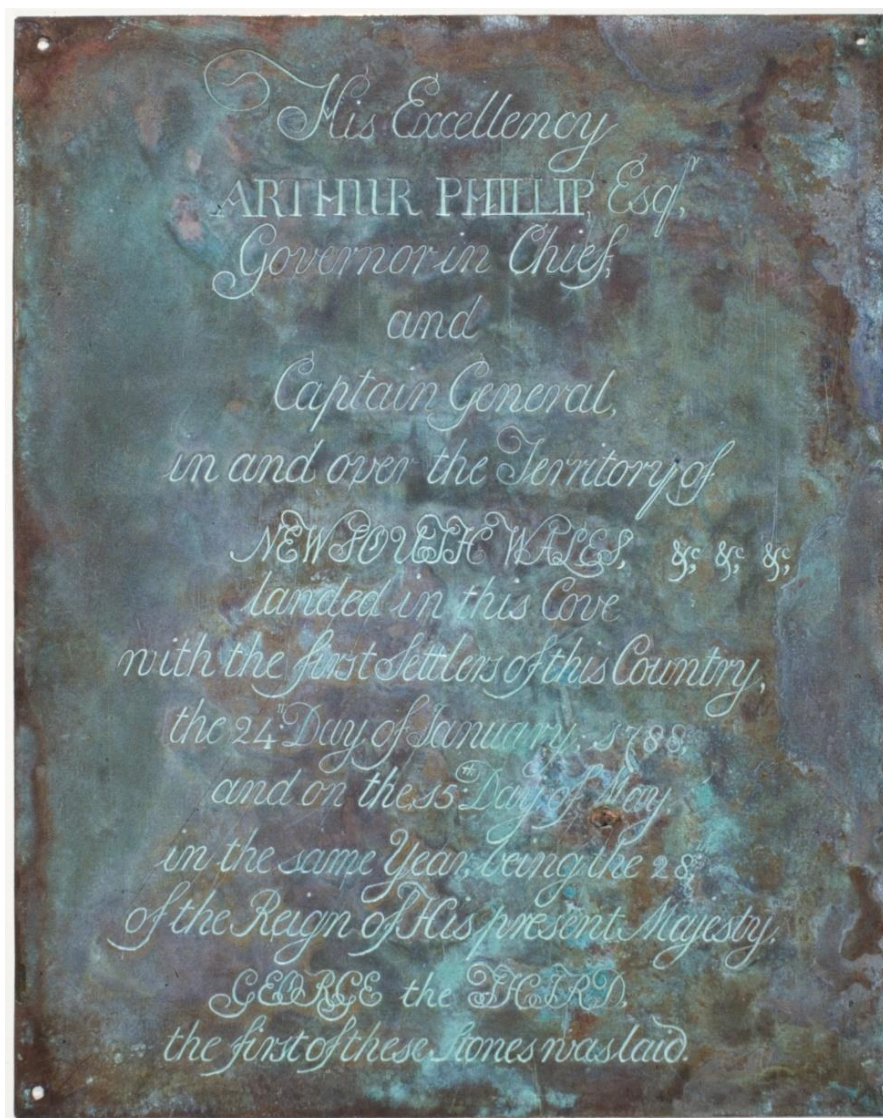 His Excellency
ARTHUR PHILLIP, Esqr,
Governor in Chief,
and
Captain General,
in and over the Territory of
NEW SOUTH WALES, &c, &c, &c,
landed in this Cove
with the first Settlers of this Country,
the 24th Day of January, 1788,
and on the 15th Day of May
in the same Year, being the 28th
of the Reign of His present Majesty,
GEORGE the THIRD,
the first of these Stones was laid.